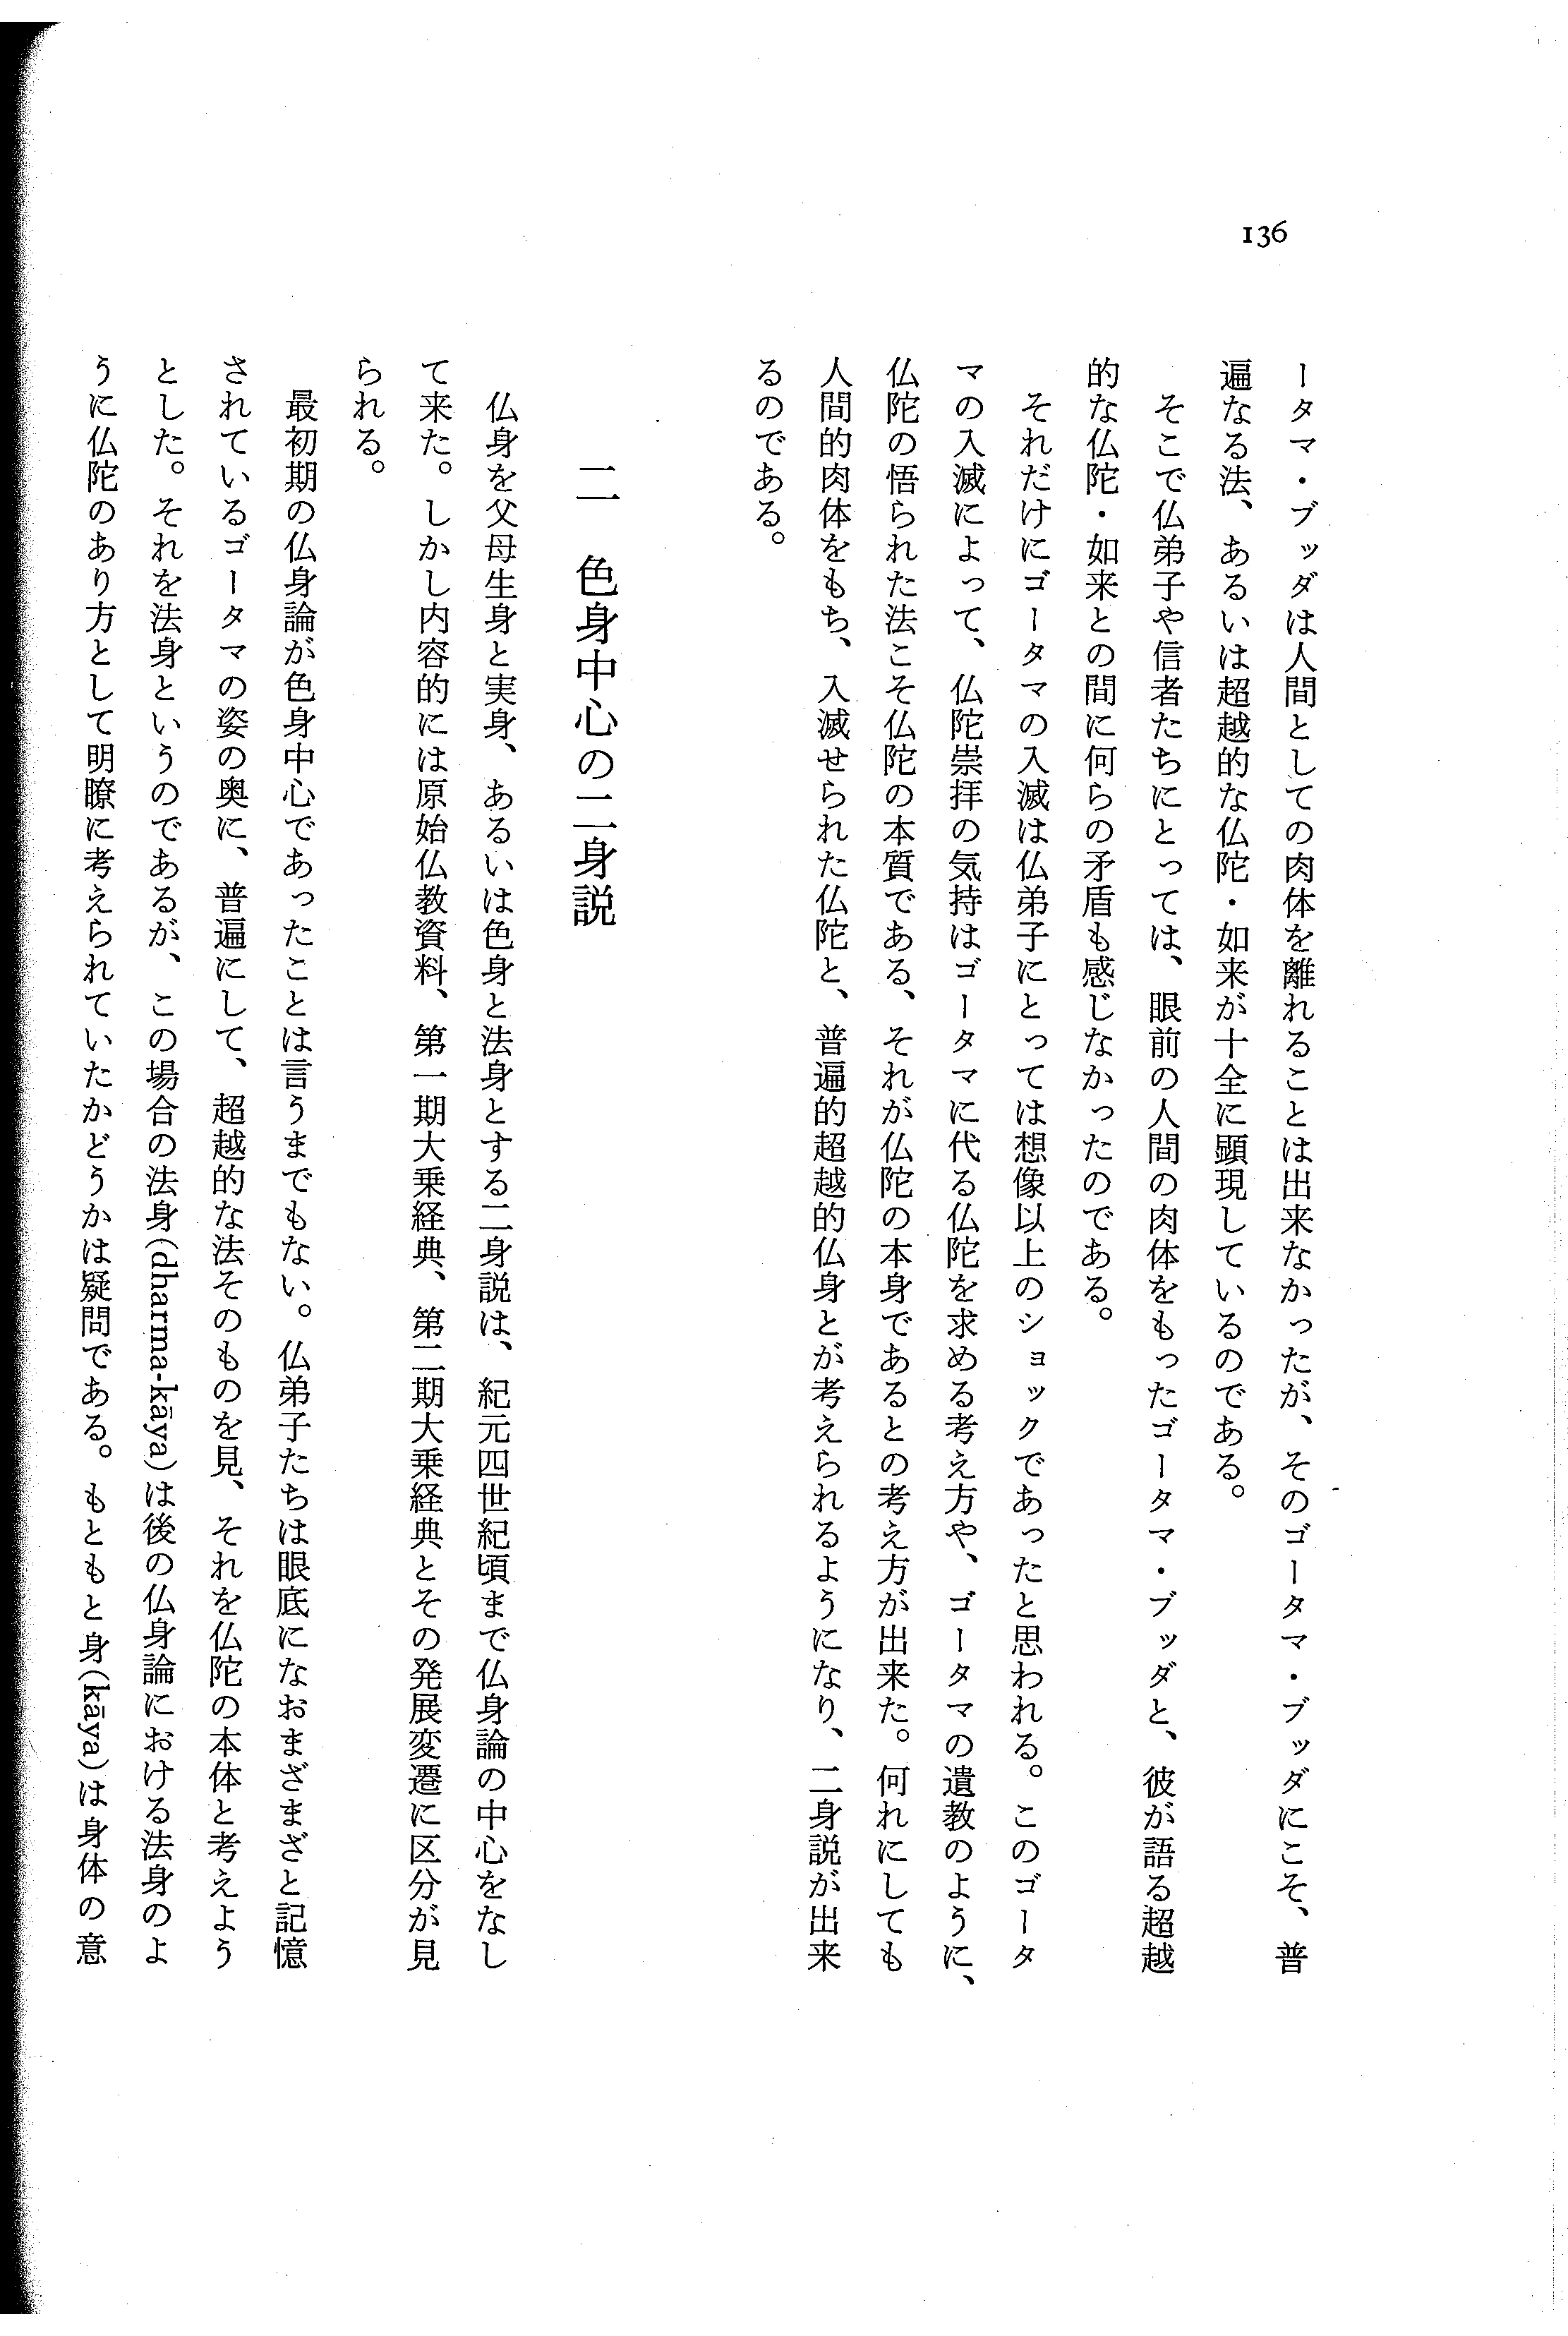 136
ータマ・ブッダは人間としての肉体を離れることは出来なかったが、そのゴータマ・ブッダにこそ、普
遍なる法、あるいは超越的な仏陀・如来が十全に顕現しているのである。
そこで仏弟子や信者たちにとっては、眼前の人間の肉体をもったゴータマ・ブッダと、彼が語る超越
的な仏陀・如来との間に何らの矛盾も感じなかったのである。
それだけにゴータマの入滅は仏弟子にとっては想像以上のショックであったと思われる。このゴータ
マの入滅によって、仏陀崇拝の気持はゴータマに代る仏陀を求める考え方や、ゴータマの遺教のように、
仏陀の悟られた法こそ仏陀の本質である、それが仏陀の本身であるとの考え方が出来た。何れにしても
人間的肉体をもち、入滅せられた仏陀と、普遍的超越的仏身とが考えられるようになり、二身説が出来
るのである。
二　色身中心の二身説
仏身を父母生身と実身、あるいは色身と法身とする二身説は、紀元四世紀頃まで仏身論の中心をなし
て来た。しかし内容的には原始仏教資料、第一期大乗経典、第二期大乗経典とその発展変遷に区分が見
られる。
最初期の仏身論が色身中心であったことは言うまでもない。仏弟子たちは眼底になおまざまざと記憶
されているゴータマの姿の奥に、普遍にして、超越的な法そのものを見、それを仏陀の本体と考えよう
とした。それを法身というのであるが、この場合の法身(dharma-kāya)は後の仏身論における法身のよ
うに仏陀のあり方として明瞭に考えられていたかどうかは疑問である。もともと身(kāya)は身体の意